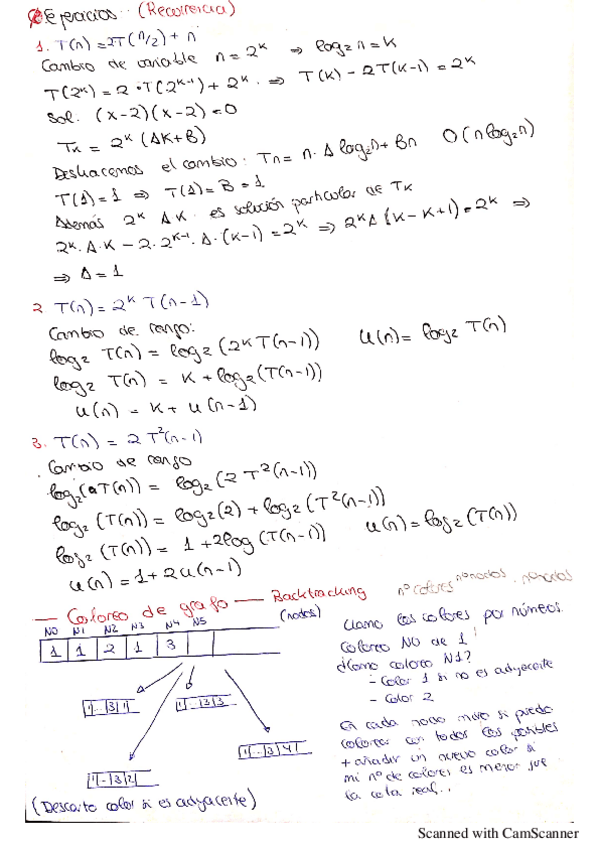 Ejercicios (Recorrencia)
1. T(n)=2T(n/2)+n
Cambio de variable n = 2^k ⇒ log₂ n = k
T(2^k) = 2·T(2^(k-1)) + 2^k ⇒ T(k) - 2T(k-1) = 2^k
Sol: (x-2)(x-2)=0
Tk = 2^k (Ak+B)
Deshacemos el cambio: Tn = n·A log₂n + Bn O(n log₂n)
T(1)=1 ⇒ T(1)=B=1
Además 2^k AK es solución particular de Tk
2^k·A·K - 2·2^(k-1)·A·(k-1) = 2^k ⇒ 2^k A (k-k+1) = 2^k ⇒
⇒ A = 1
2. T(n) = 2^k T(n-1)
Cambio de rango:
log₂ T(n) = log₂ (2^k T(n-1)) u(n) = log₂ T(n)
log₂ T(n) = k + log₂(T(n-1))
u(n) = k + u(n-1)
3. T(n) = 2T²(n-1)
Cambio de rango
log₂(T(n)) = log₂ (2T²(n-1))
log₂ (T(n)) = log₂(2) + log₂ (T²(n-1))
log₂ (T(n)) = 1 + 2log (T(n-1)) u(n) = log₂ (T(n))
u(n) = 1 + 2u(n-1)
nº colores nº nodos nº nodos
— Coloreo de grafo — Backtracking
(nodos)
N0 N1 N2 N3 N4 N5
1 1 2 1 3
1 .. 3 1
1 .. 3 3
1 .. 3 4
1 .. 3 2
(Descarto color si es adyacente)
Llamo los colores por números.
Coloreo N0 de 1
¿Como coloreo N1?
- Color 1 si no es adyacente
- Color 2
En cada nodo miro si puedo
colorear con todos los posibles
+ añadir un nuevo color si
mi nº de colores es menor que
la cota real...
Scanned with CamScanner